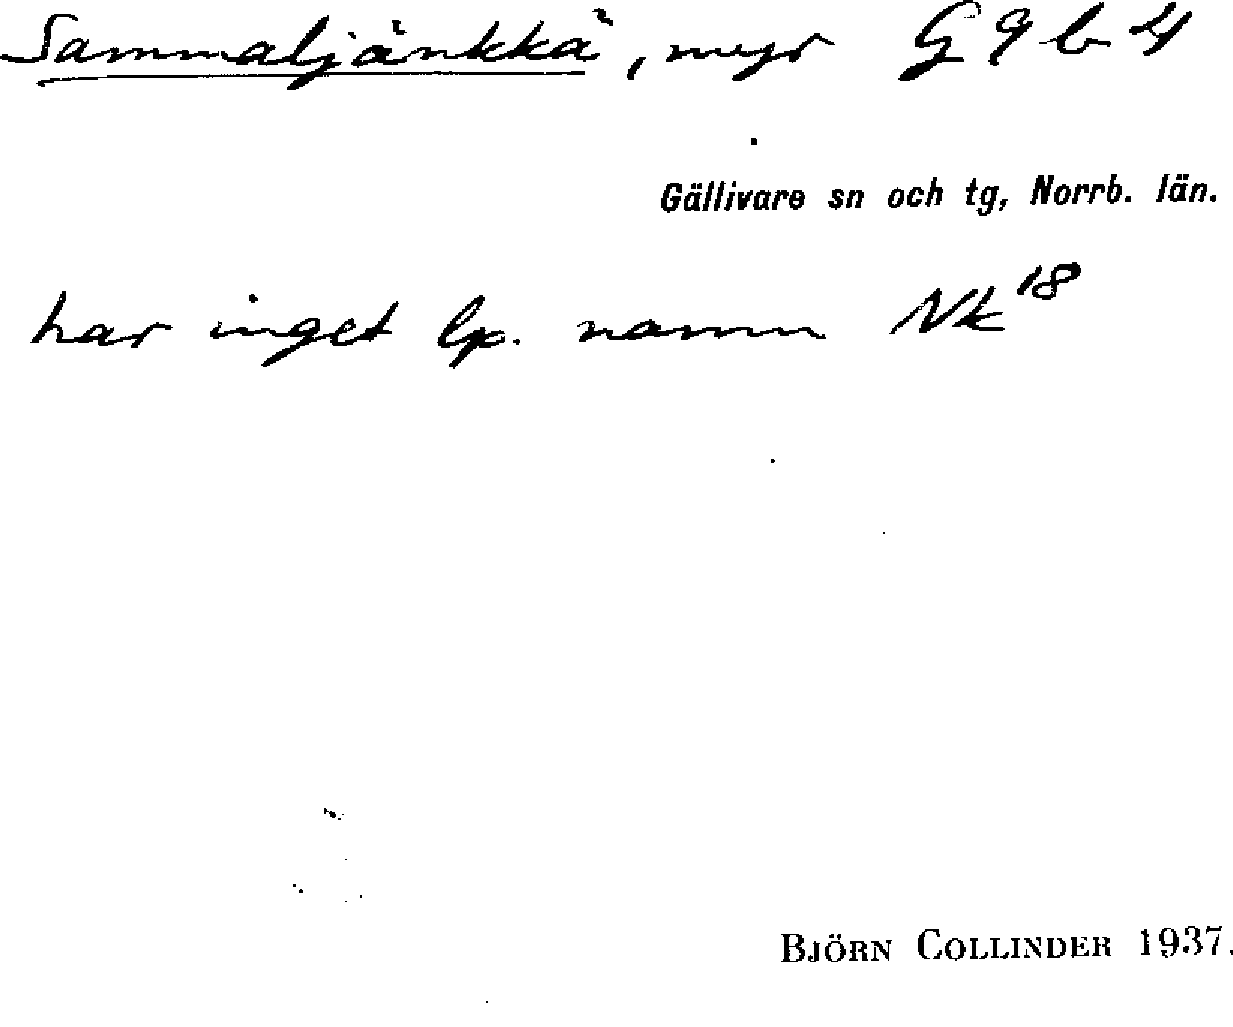 Sammaljänkkä, myr G 9 b 4
Gällivare sn och tg, Norrb. län.
har inget lp. namn Nk18
BJÖRN COLLINDER 1937.